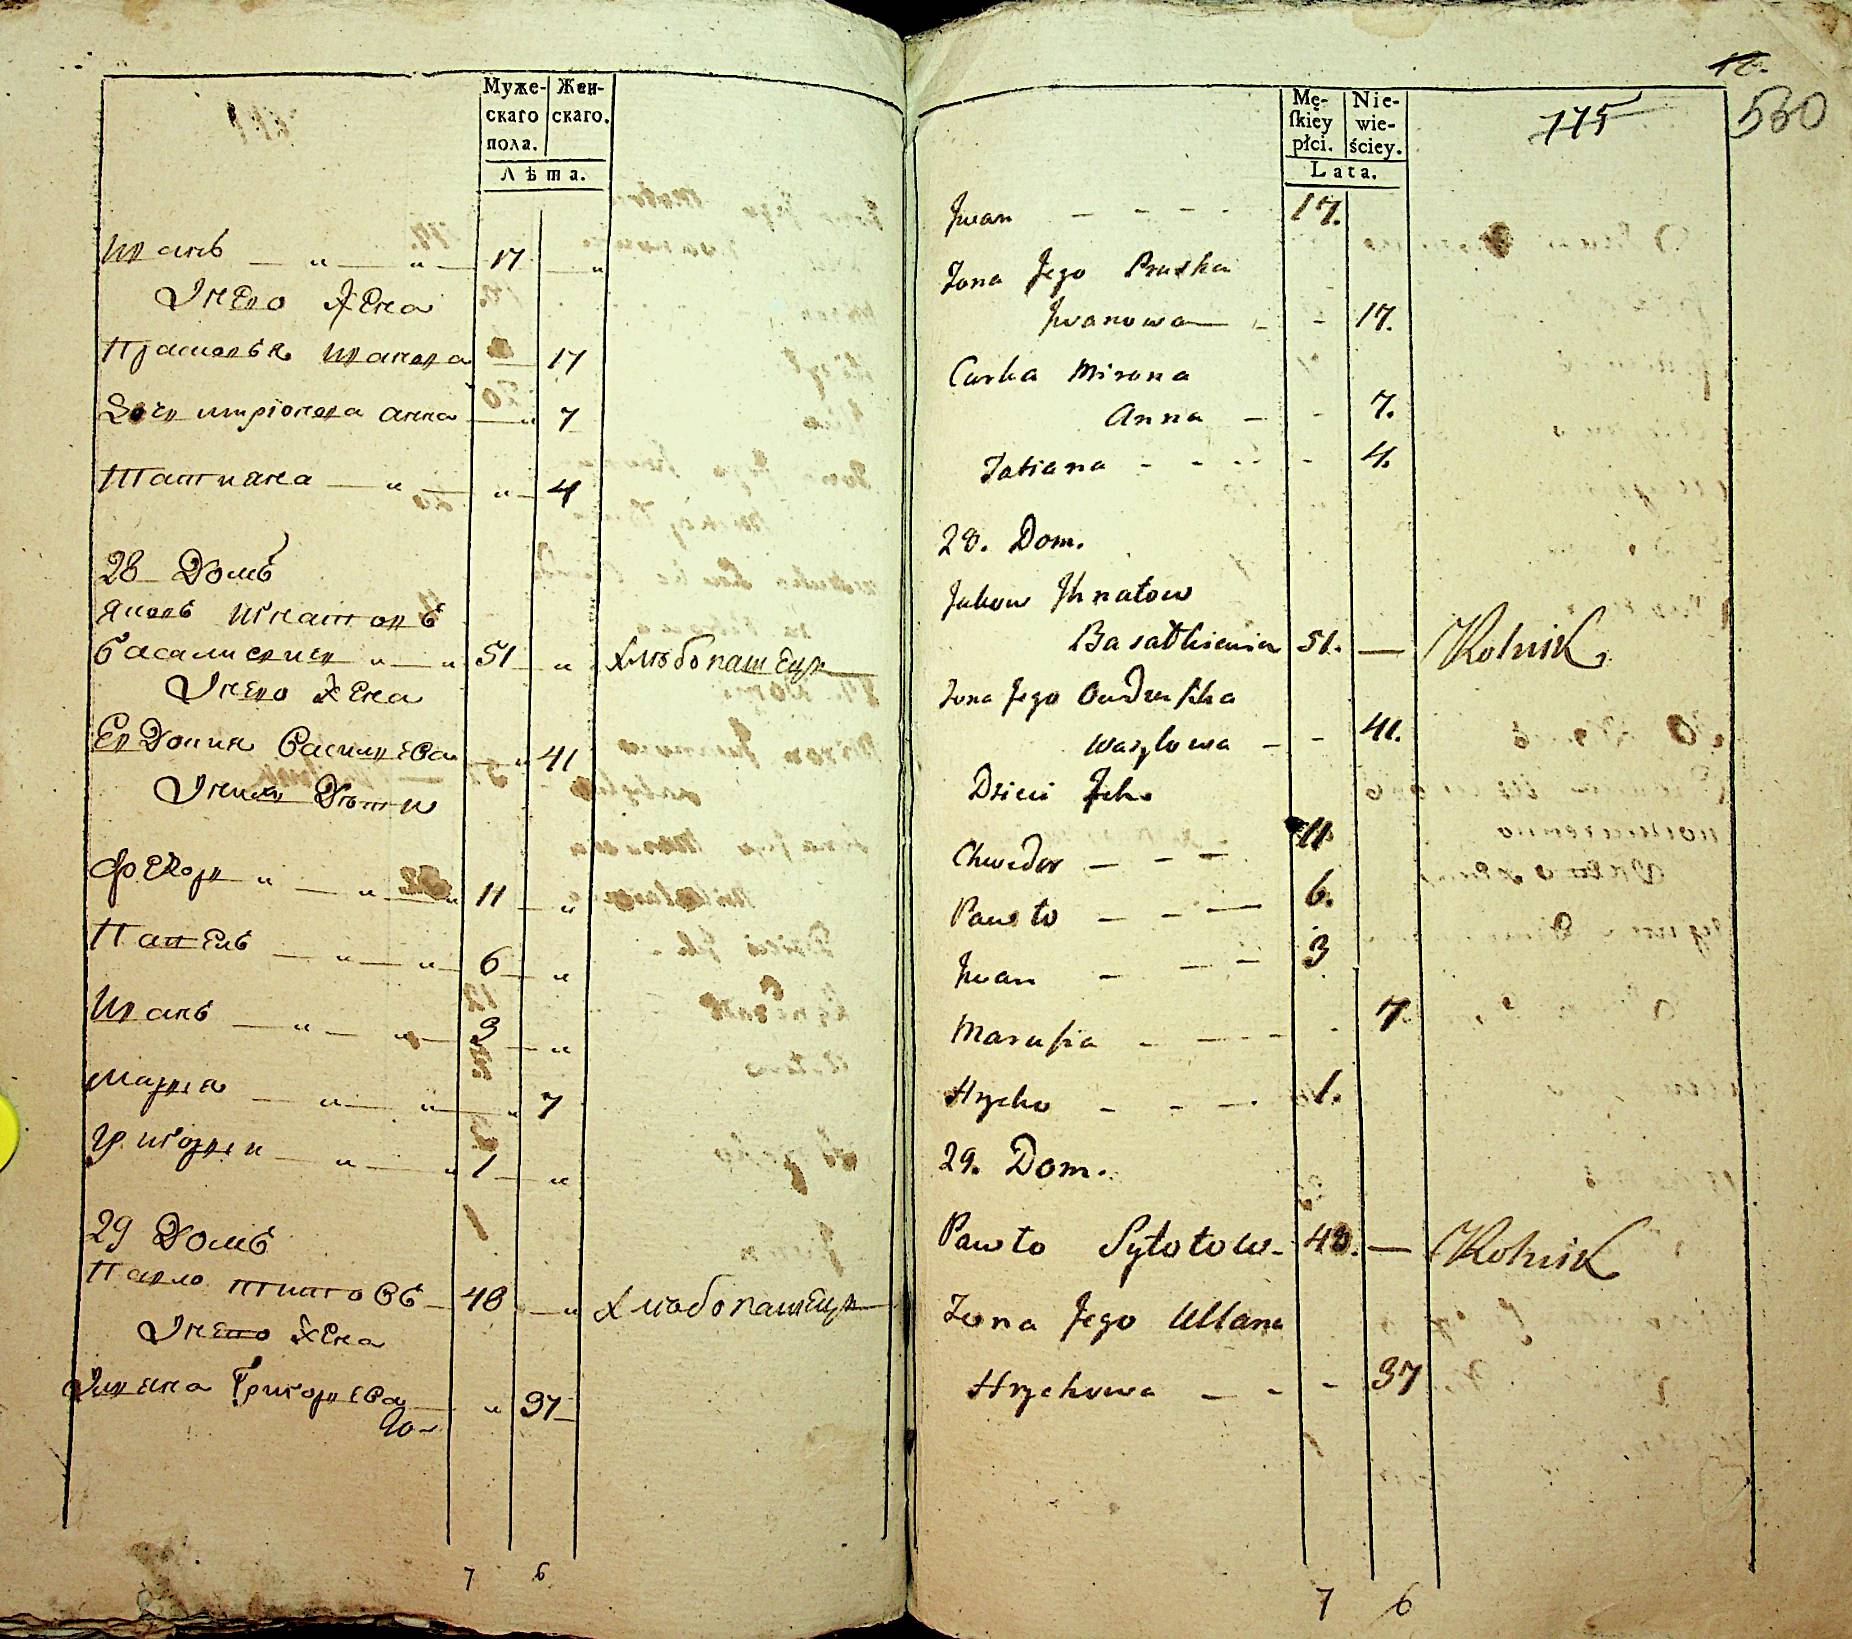 Муже-
скаго
пола.
Жен-
скаго.
Лѣта.
Иванъ 17
У него жена
Прасковья Иванова 17
Дочь миронова анна 7
Татиана 4
28 Домъ
Яковъ Игнатовъ
Басалисвичъ 51 хлѣбопашецъ
У него жена
Евдокия Василиева 41
У них Дѣти
Федоръ 11
Павелъ 6
Иванъ 3
Мария 7
Григорий 1
29 Домъ
Павло 48 хлѣбопашецъ
У него жена
Улиана Григориева 37
7 6
18.
530
175
Mę-
ſkiey
płci.
Nie-
wie-
ściey.
Lata.
Jwan - - - - 17.
Żona Jego Pruska
Jwanowa - - 17.
Curka Mirona
Anna - - 7.
Tatiana - - - - 4.
28. Dom.
Jakow Jhnatow
51. — Rolnik
Żona Jego Oudruſzka
Wasylowa - - 41.
Dzieci Jch
Chwedor - - - 11.
Pawło - - - 6.
Jwan - - - 3
Maruſia - - - - 7.
Hrycko - - - 1.
29. Dom.
Pawło Sytotow - 48. — Rolnik
Żona Jego Ullana
Hrychowa - - - 37
7 6